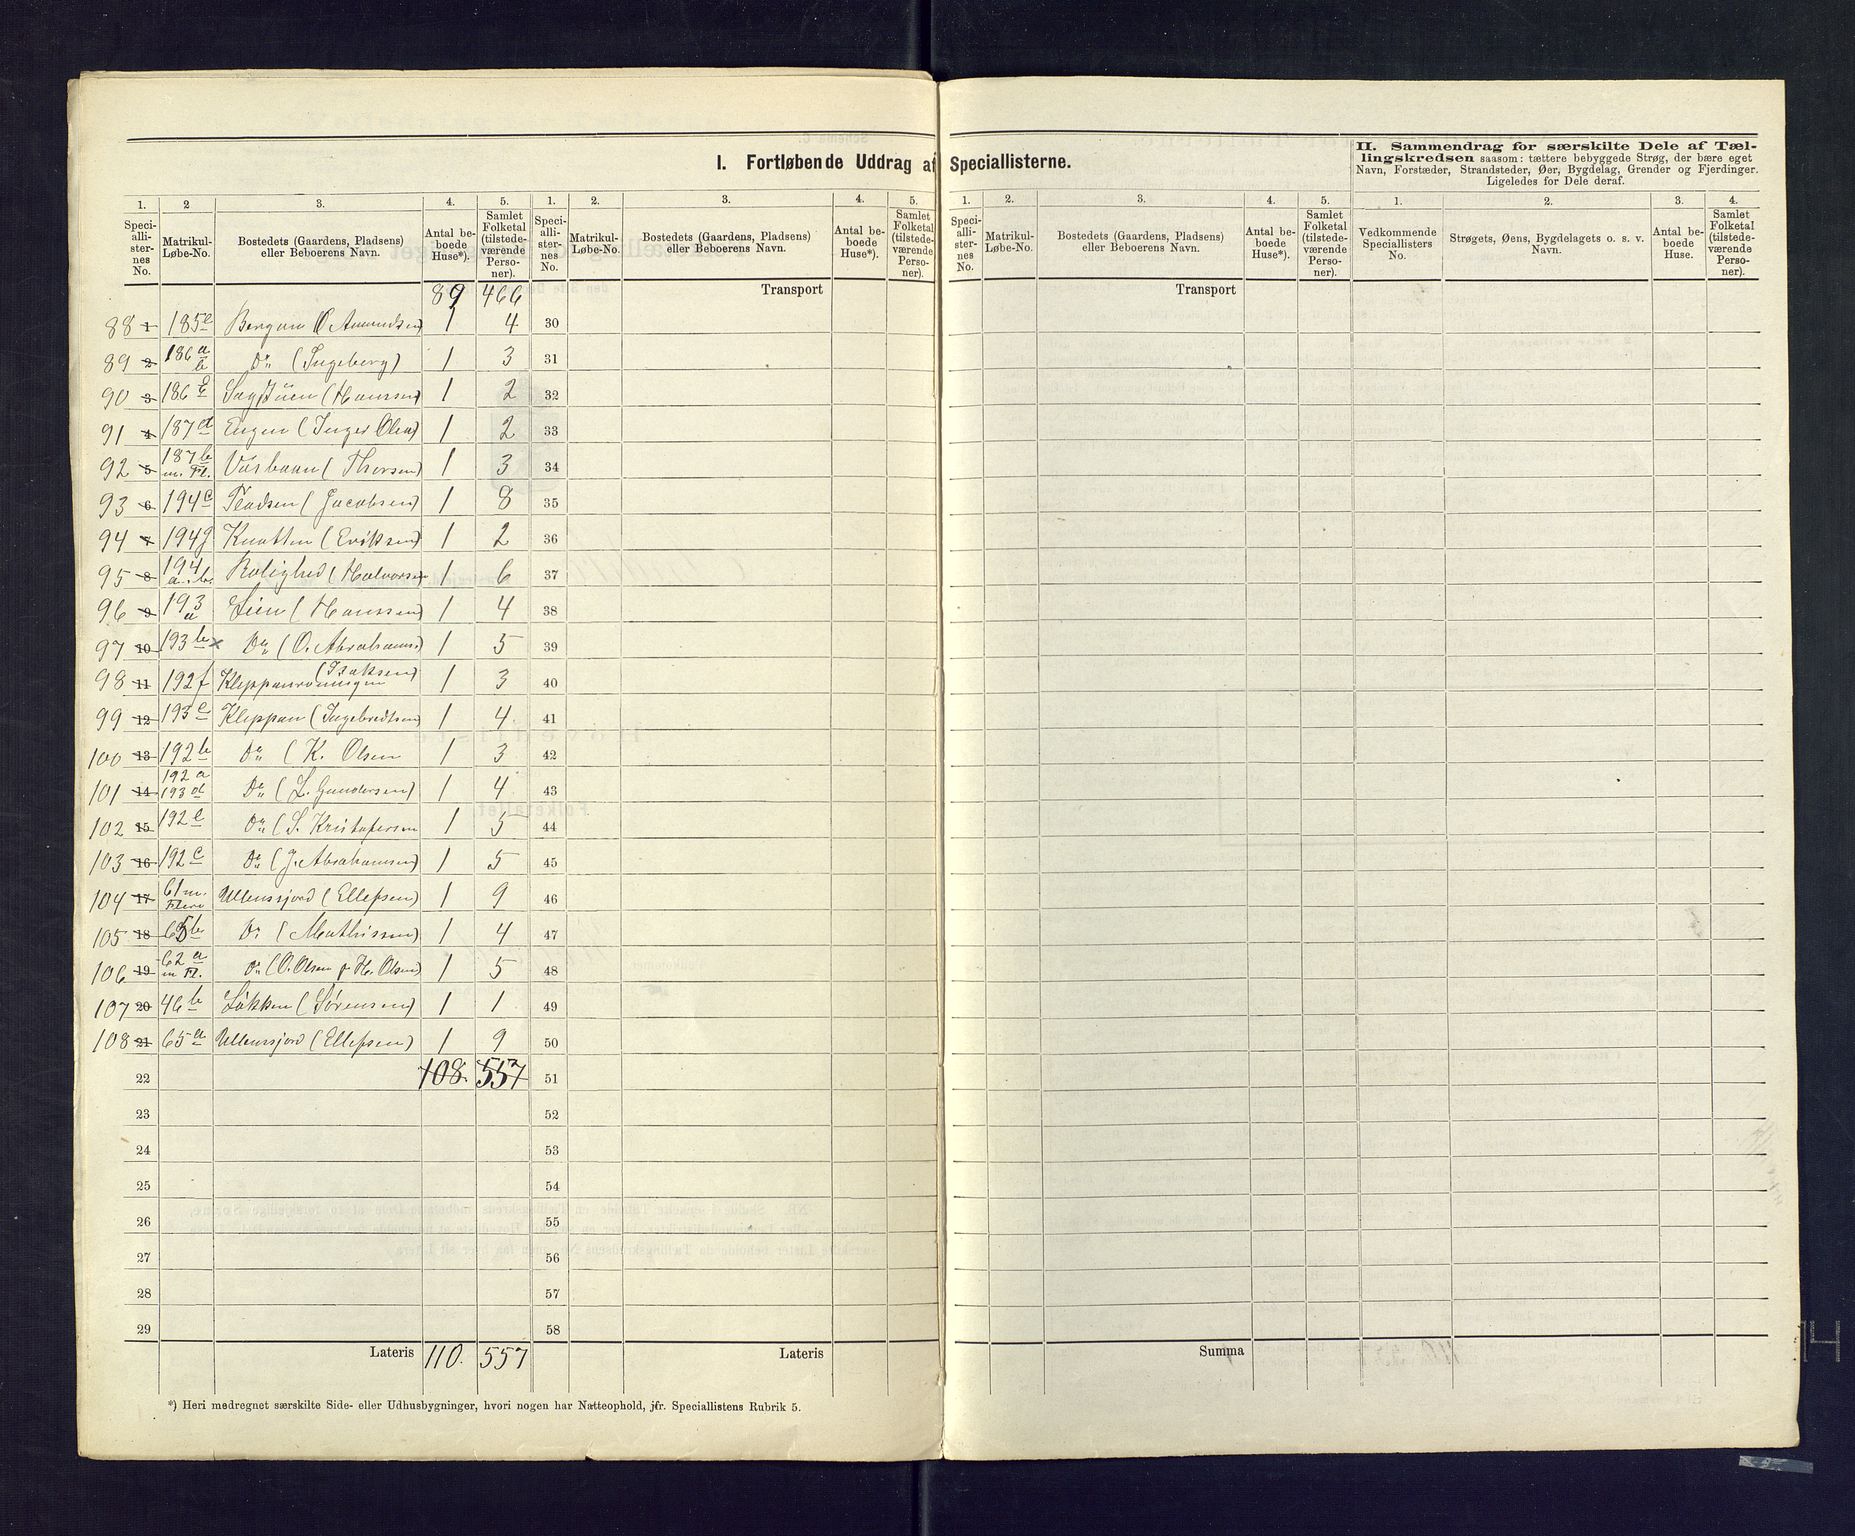 I. Fortløbende Uddrag af Speciallisterne.
II. Sammendrag for særskilte Dele af Tæl-
lingskredsen saasom: tættere bebyggede Strøg, der bære eget
Navn, Forstæder, Strandsteder, Øer, Bygdelag, Grender og Fjerdinger.
Ligeledes for Dele deraf.
1. 2 3. 4. 5. 1. 2. 3. 4. 5. 1. 2. 3. 4. 5. 1. 2. 3. 4.
Speciallisternes No. Matrikul-Løbe-No. Bostedets (Gaardens, Pladsens) eller Beboerens Navn. Antal beboede Huse*). Samlet Folketal (tilstedeværende Personer).
Speciallisternes No. Matrikul-Løbe-No. Bostedets (Gaardens, Pladsens) eller Beboerens Navn. Antal beboede Huse*). Samlet Folketal (tilstedeværende Personer).
Speciallisternes No. Matrikul-Løbe-No. Bostedets (Gaardens, Pladsens) eller Beboerens Navn. Antal beboede Huse*). Samlet Folketal (tilstedeværende Personer).
Vedkommende Speciallisters No. Strøgets, Øens, Bygdelagets o. s. v. Navn. Antal beboede Huse. Samlet Folketal (tilstedeværende Personer).
89 466 Transport Transport
88 1 185e Bergan (O Amundsen) 1 4 30
89 2 186a b Do (Ingeberg) 1 3 31
90 3 186 (Hanssen) 1 2 32
91 4 187d Engen (Inger Olea) 1 2 33
92 5 187b m. Fl. (Thorsen) 1 3 34
93 6 194c Pladsen (Jacobsen) 1 8 35
94 7 194g Knatten (Eriksen) 1 2 36
95 8 194 a. b. Rolighed (Halvorsen 1 6 37
96 9 193 a Lien (Hanssen) 1 4 38
97 10 193b x Do (O. Abrahams.) 1 5 39
98 11 192f Kleppanrønningen (Isaksen) 1 3 40
99 12 193c Kleppan (Ingebretsen) 1 4 41
100 13 192b Do (K. Olsen 1 3 42
101 14 192a 193d Do (L. Gundersen) 1 4 43
102 15 192e Do (S. Kristofersen 1 5 44
103 16 192c Do (J. Abrahamsen) 1 5 45
104 17 61 m. Flere Ullensjord (Ellefsen) 1 9 46
105 18 65b Do (Mathissen) 1 4 47
106 19 62a m Fl. Do (O. Olsen f. H. Olsen) 1 5 48
107 20 46b Løkken (Sørensen) 1 1 49
108 21 65a Ullenssjord (Ellefsen) 1 9 50
22 108. 557 51
23 52
24 53
25 54
26 55
27 56
28 57
29 58
Lateris 110. 557 Lateris Summa
*) Heri medregnet særskilte Side- eller Udhusbygninger, hvori nogen har Natteophold, jfr. Speciallistens Rubrik 5.